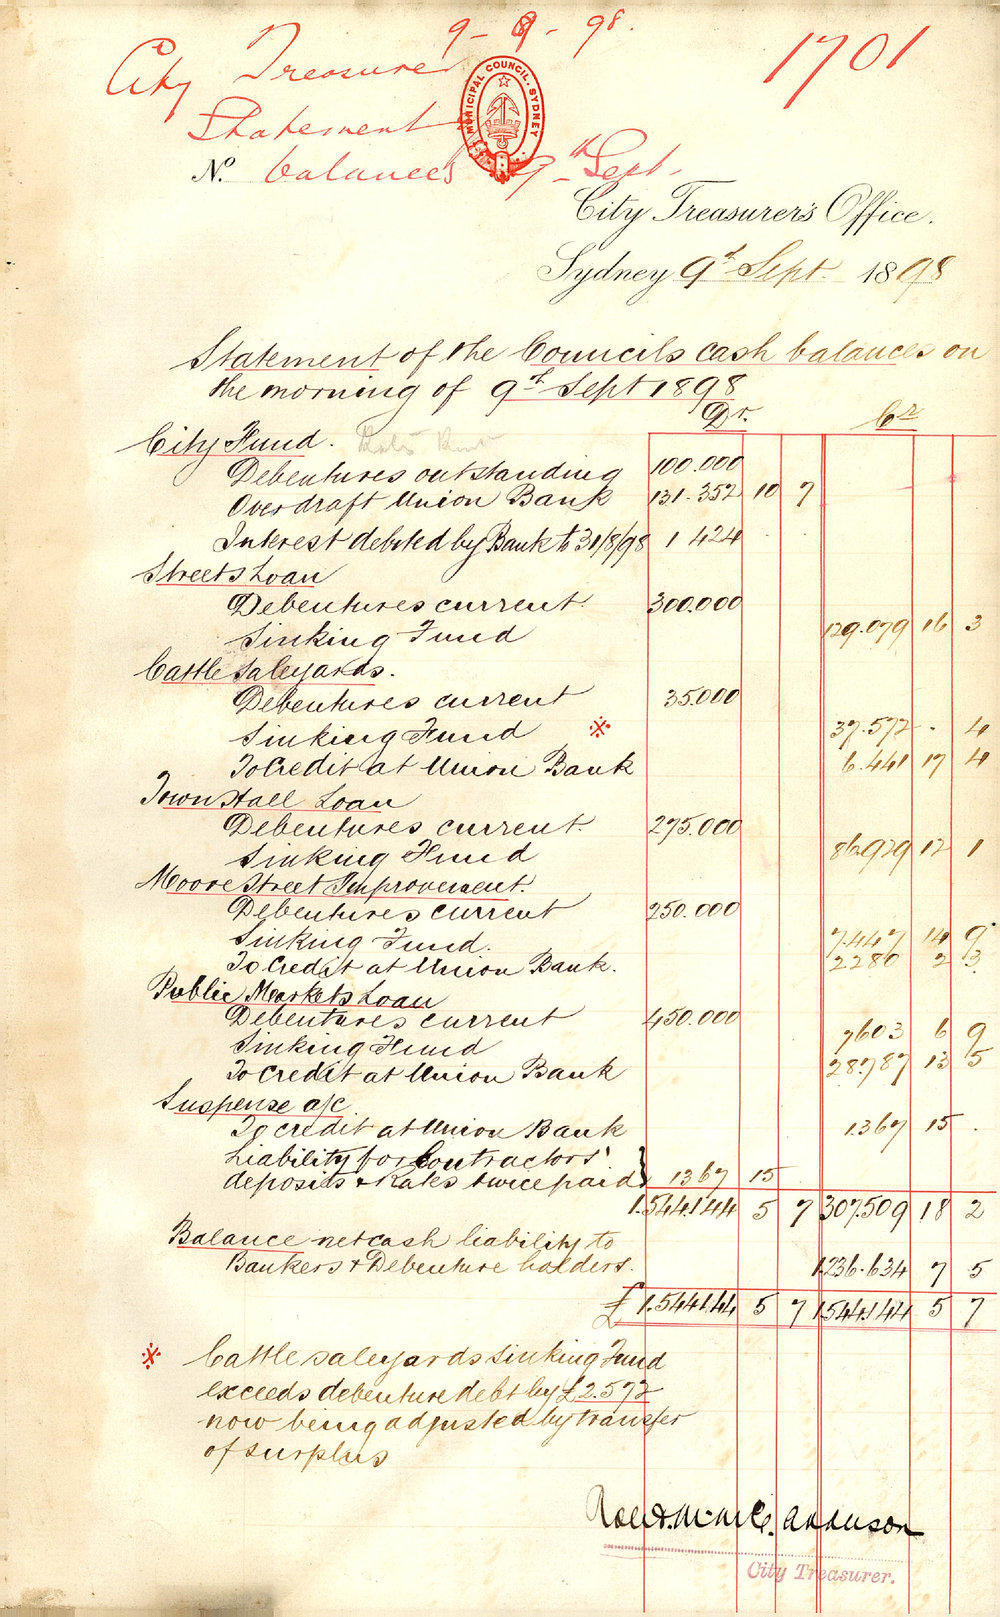 9 - 9 - 98.
1701
City Treasurer
MUNICIPAL COUNCIL. SYDNEY
Statement
No. balances 9th Sept.
City Treasurer's Office.
Sydney 9th Sept. 1898
Statement of the Councils cash balances on
the morning of 9th Sept 1898
Dr. Cr
City Fund.
Debentures outstanding 100.000
Overdraft Union Bank 131.352 10 7
Interest debited by Bank to 31/8/98 1 424 . .
Streets Loan
Debentures current. 300.000
Sinking Fund 129.079 16 3
Cattle Saleyards.
Debentures current 35.000
Sinking Fund ※ 37.572 - 4
To Credit at Union Bank 6.441 17 4
Town Hall Loan
Debentures current. 275.000
Sinking Fund 86.929 12 1
Moore Street Improvement.
Debentures current 250.000
Sinking Fund. 7.447 14 9
To Credit at Union Bank. 2280 2 3
Public Markets Loan
Debentures current 450.000
Sinking Fund 7603 6 9
To Credit at Union Bank 28.787 13 5
Suspense a/c
To credit at Union Bank 1367 15 .
Liability for Contractors'
deposits & Rates twice paid } 1367 15
1.544.144 5 7 307.509 18 2
Balance net cash liability to
Bankers & Debenture holders. 1.236.634 7 5
£ 1.544.144 5 7 1544.144 5 7
※ Cattle saleyards Sinking Fund
exceeds debenture debt by £2.572
now being adjusted by transfer
of surplus
City Treasurer.